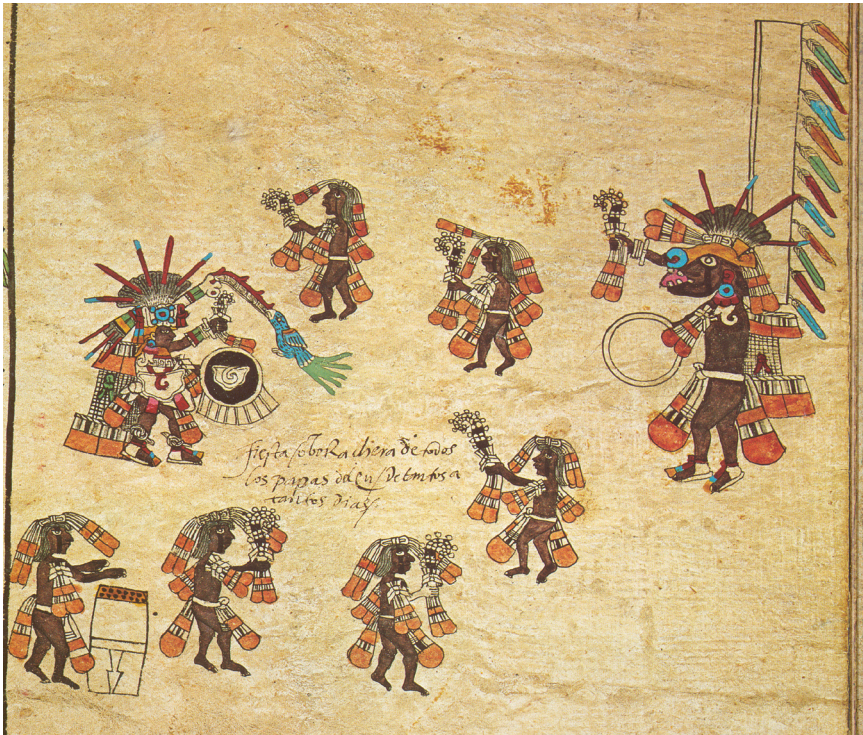 fiesta o boRachera de todos
los papas del cu / De tantos a
tantos dias